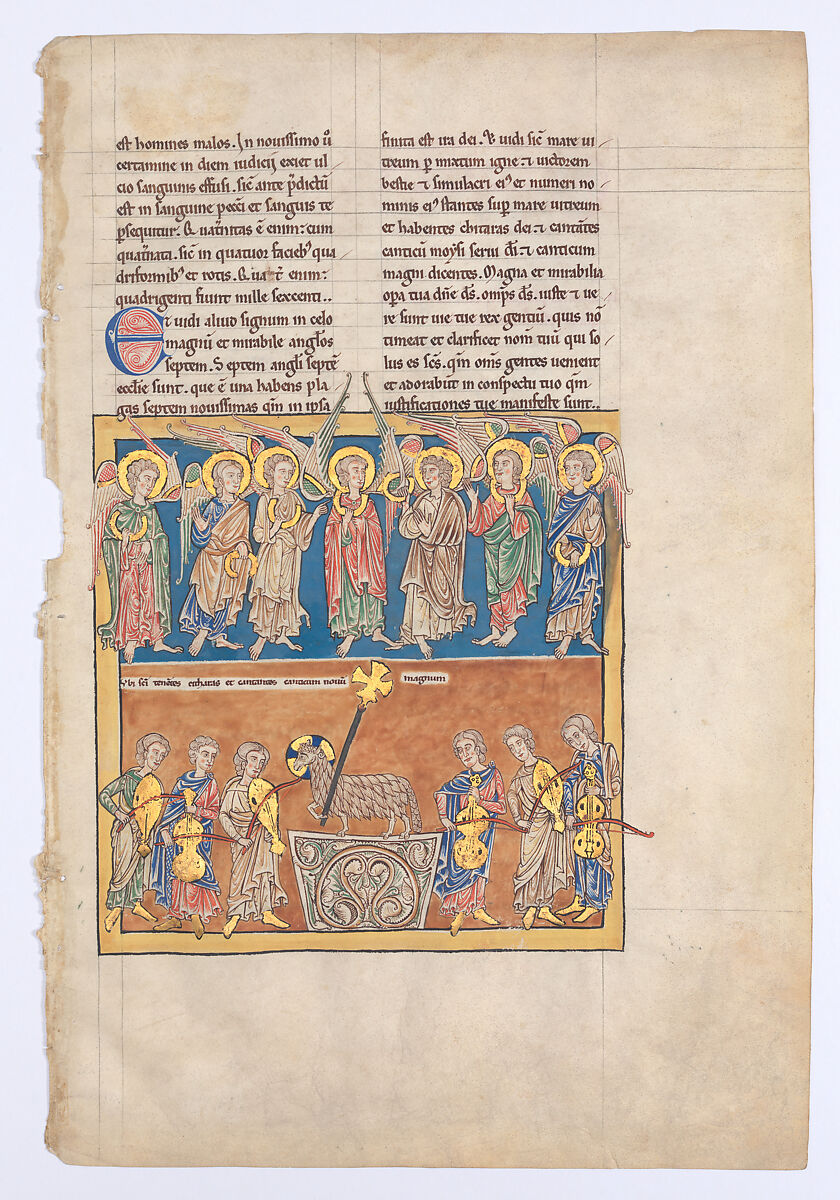 est homines malos. In nouissimo u͛o
certamine in diem iudicij exiet ul
cio sanguinis effusi. sic̄ ante p̄dictū
est in sanguine pecc̄i et sanguis te
ꝑsequitur. Quat̄nitas ē enim: cum
quat̄nata. sic̄ in quatuor facieb᷒ qua
driformib᷒ et rotis. Quat̄ ē enim:
quadrigenti fiunt mille sexcenti..
Et uidi aliud signum in celo
magnū et mirabile angl̄os
septem. Septem angl̄i septē
eccl̄ie sunt. que ē una habens pla
gas septem nouissimas qm̄ in ipsa
finita est ira dei. Et uidi sic̄ mare ui
treum ꝑ mixtum igne ⁊ uictorem
bestie ⁊ simulacri ei᷒ et numeri no
minis ei᷒ stantes suꝑ mare uitreum
et habentes chitaras dei ⁊ cantātes
canticū moysi serui dī ⁊ canticum
magni dicentes. Magna et mirabilia
oꝑa tua dn̄e ds̄. omp̄s ds̄. iuste ⁊ ue
re sunt uie tue rex gentiū. quis nō
timeat et clarificet nom̄ tuū qui so
lus es sc̄s. qm̄ om̄s gentes uenient
et adorabūt in conspectu tuo qm̄
iustificationes tue manifeste sunt..
Vbi sc̄i tenētes citharas et cantantes canticum nouū magnum